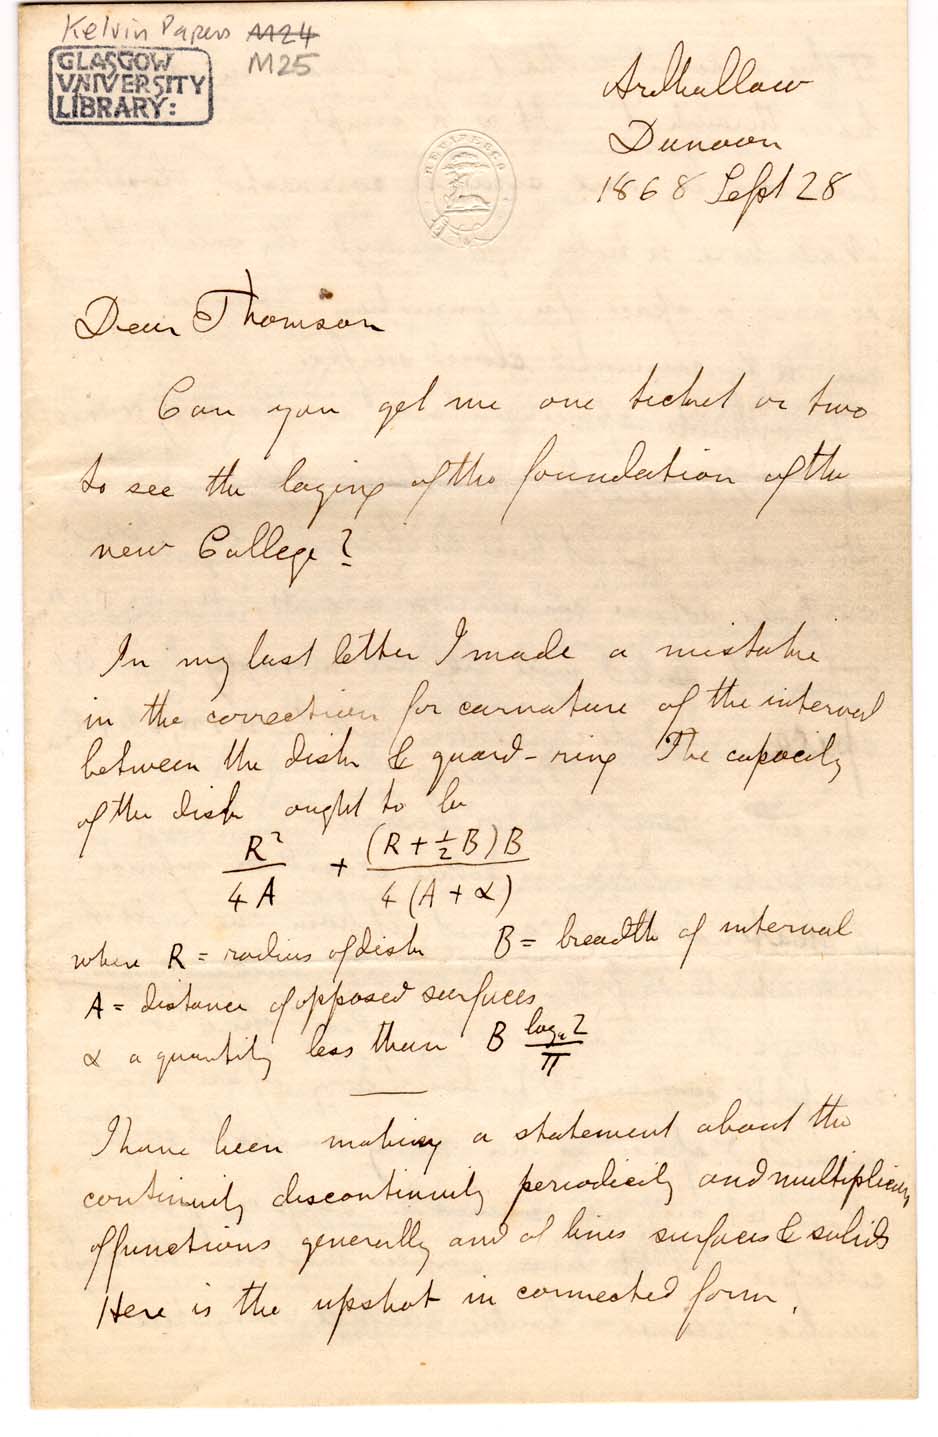 Kelvin Papers M24
M25
GLASGOW
UNIVERSITY
LIBRARY:
Ardhallow
Dunoon
1868 Sept 28
Dear Thomson
Can you get me one ticket or two
to see the laying of the foundation of the
new College?
In my last letter I made a mistake
in the correction for curvature of the interval
between the disk & guard-ring The capacity
of the disk ought to be
R²/4A + (R + ½B)B/4(A + α)
where R = radius of disk B = breadth of interval
A = distance of opposed surfaces
α a quantity less than B logₑ2/π
I have been making a statement about the
continuity discontinuity periodicity and multiplicity
of functions generally and of lines surfaces & solids
Here is the upshot in connected form.